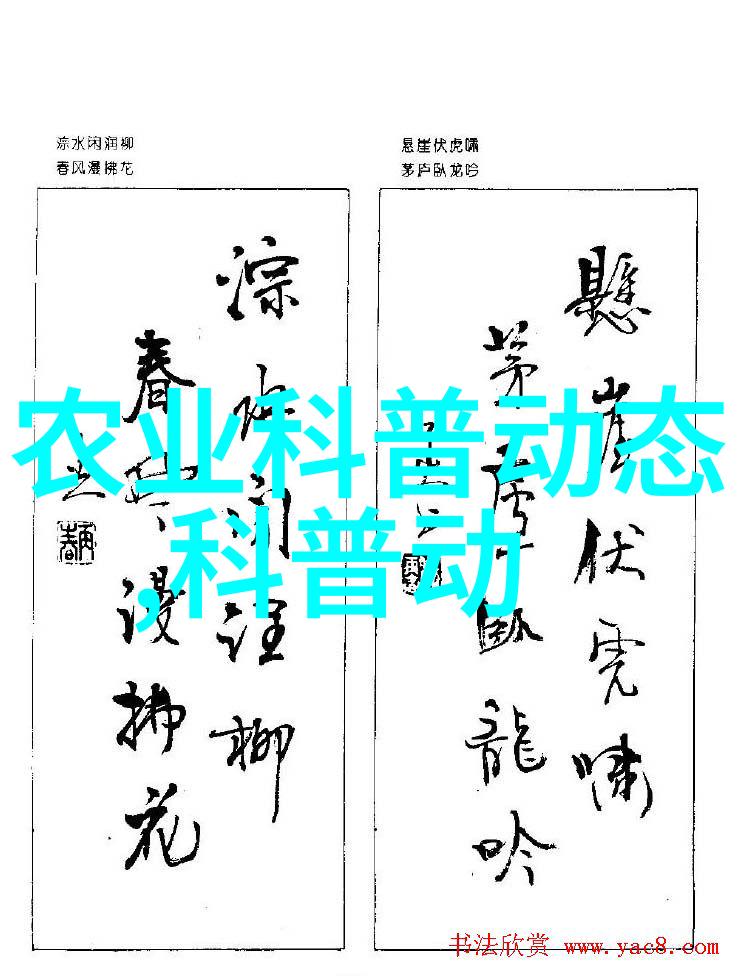 淙水闲润柳
春风漫拂花
悬崖伏虎啸
茅庐卧龙吟
懸崖伏虎嘯
茅廬卧龍吟
淙水闲润柳
春风漫拂花
农业科普动态
,科普动
书法欣赏 www.yac8.com